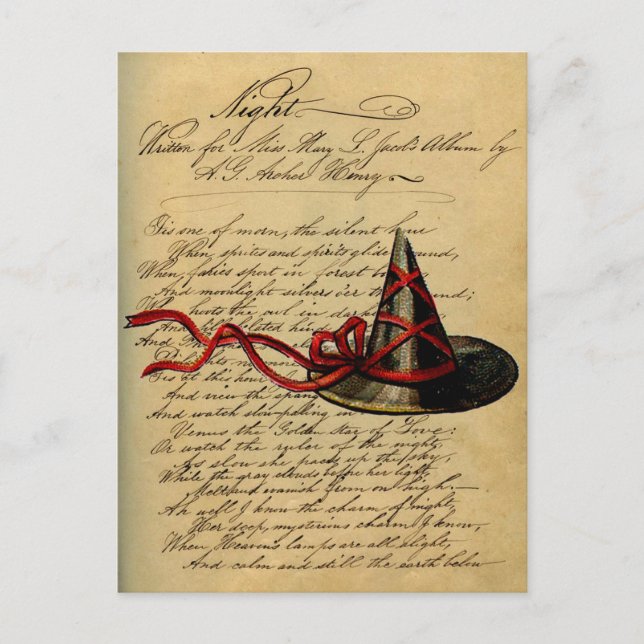 Night
Written for Miss Mary L. Jacob's Album by
A. G. Archer Henry.
Tis one of morn, the silent hour
When, sprites and spirits glide
When, faries sport in forest
And moonlight silvers o'er the
hoots the owl in dark
And
And
no more
Tis at this hour
And view the
And watch slow-paling in
Venus the Golden Star of Love:
Or watch the ruler of the night,
As slow she paces up the sky,
While the gray clouds before her light
Melt and vanish from on high.—
Ah well I know the charm of night,
Her deep, mysterious charm I know,
When Heavens lamps are all alight,
And calm and still the earth below